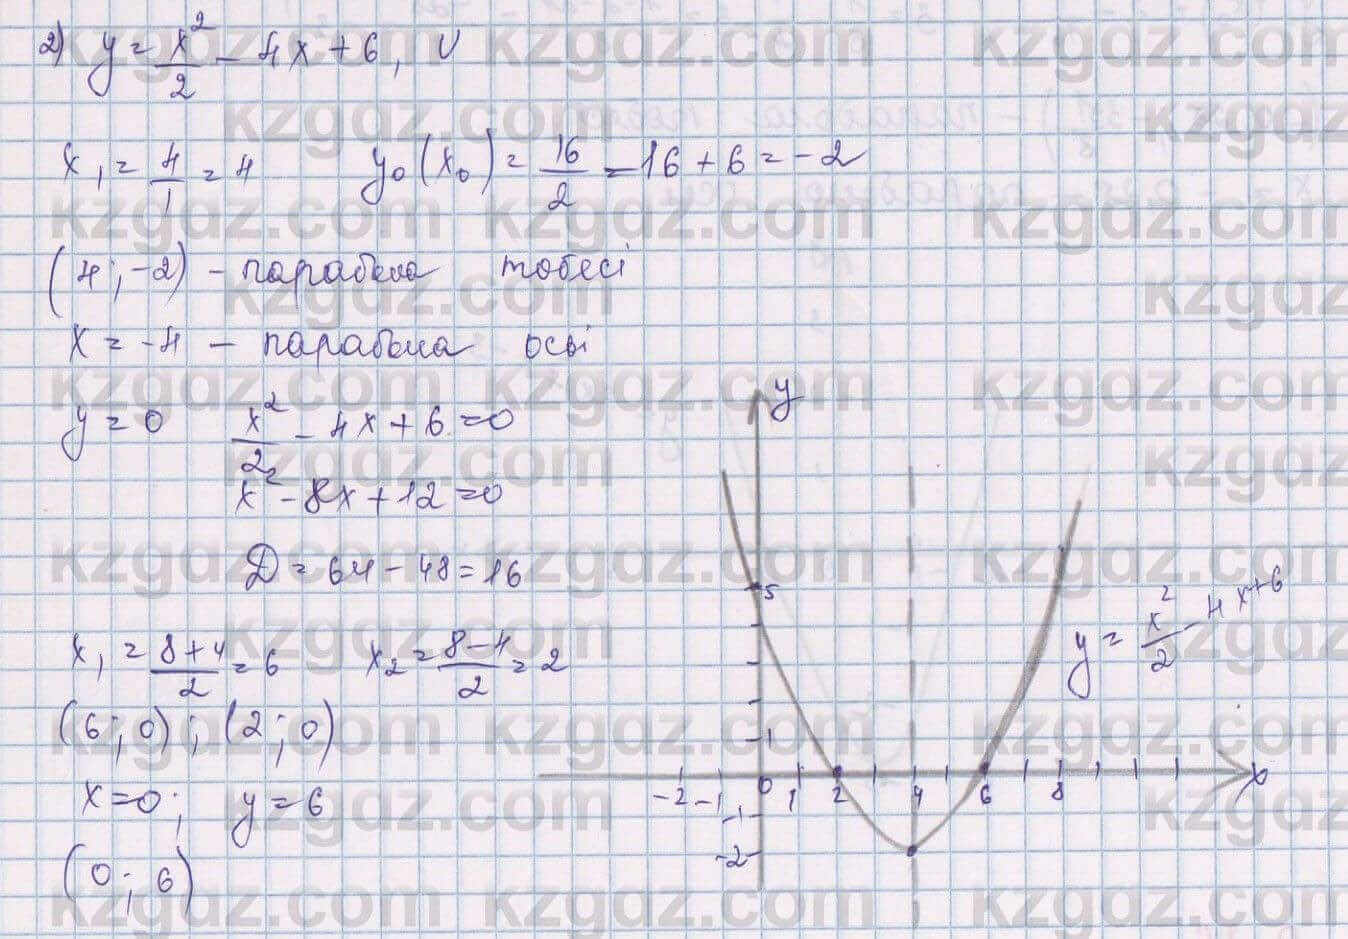 2) y = x²/2 - 4x + 6, U
x₁ = 4/1 = 4 y₀(x₀) = 16/2 - 16 + 6 = -2
(4; -2) - парабола төбесі
x = -4 - парабола осі
y = 0 x²/2 - 4x + 6 = 0
x² - 8x + 12 = 0
D = 64 - 48 = 16
x₁ = (8+4)/2 = 6 x₂ = (8-4)/2 = 2
(6; 0); (2; 0)
x = 0; y = 6
(0; 6)
y
5
1
-2 -1 0 1 2 4 6 8 x
-1
-2
y = x²/2 - 4x+6
kzgdz.com